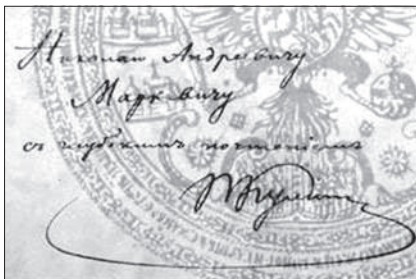 Николаю Андреевичу
Маркевичу
съ глубокимъ почтеніемъ